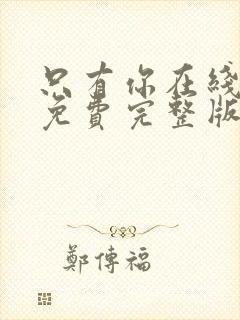 只有你在綫
免費完整版
鄭傳福